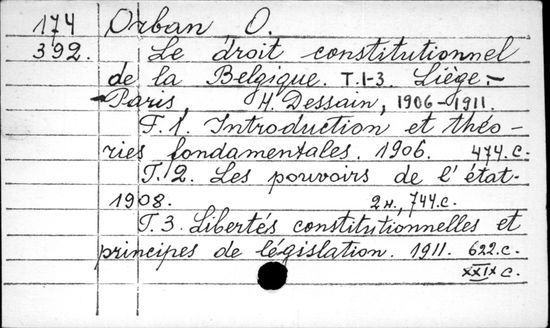 174 Orban O.
392. Le droit constitutionnel
de la Belgique. T.1-3. Liège,-
-Paris, H. Dessain, 1906-1911.
T.1. Introduction et théo-
ries fondamentales. 1906. 474.c.
T.2. Les pouvoirs de l'état.
1908. 2н., 744.c.
T.3. Libertés constitutionnelles et
principes de législation. 1911. 622.c.
XXIX c.